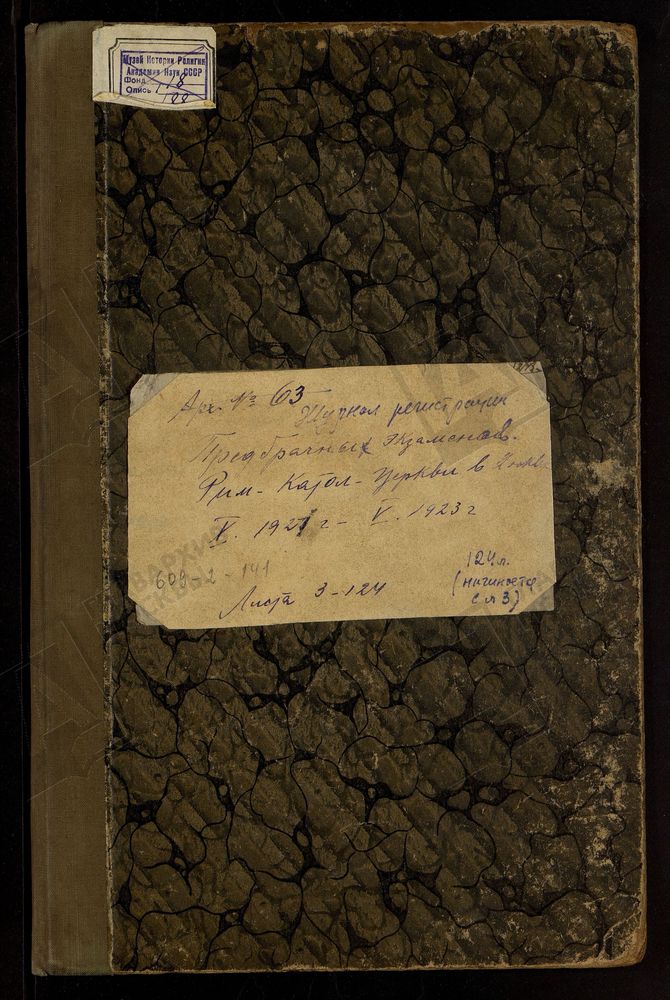 Музей Истории Религии
Академии Наук СССР
Фонд 118
Опись 188
Арх. № 63
Журнал регистрации
Предбрачных экзаменов.
Рим-Катол-Церкви в
X. 1921 г – V. 1923 г
609-2-141
124 л.
(начинается
с л 3)
Листа 3-124